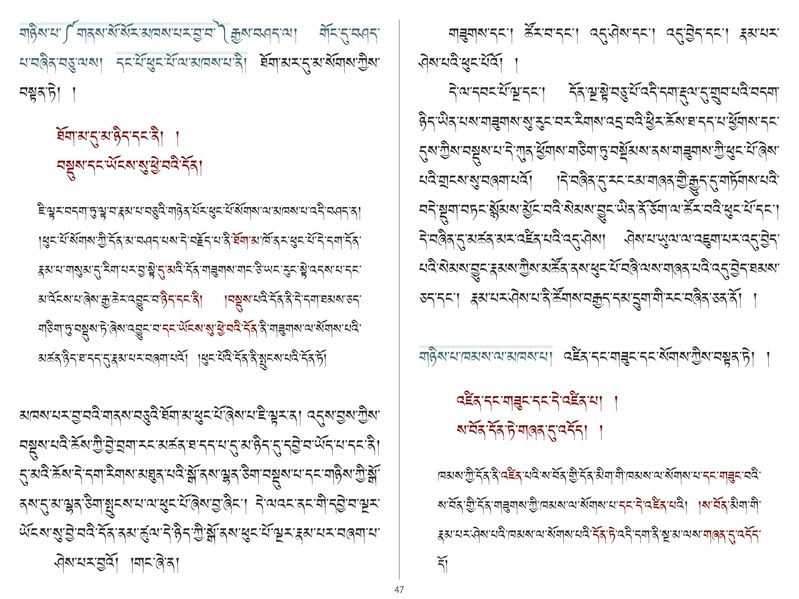 གཉིས་པ་༼གནས་སོ་སོར་མཁས་པར་བྱ་བ་༽རྒྱས་བཤད་ལ། གོང་དུ་བཤད་
པ་བཞིན་བཅུ་ལས། དང་པོ་ཕུང་པོ་ལ་མཁས་པ་ནི། ཐོག་མར་དུ་མ་སོགས་ཀྱིས་
བསྟན་ཏེ། །
ཐོག་མ་དུ་མ་ཉིད་དང་ནི། །
བསྡུས་དང་ཡོངས་སུ་ཕྱེ་བའི་དོན།
ཇི་ལྟར་བདག་ཏུ་ལྟ་བ་རྣམ་པ་བཅུའི་གཉེན་པོར་ཕུང་པོ་སོགས་ལ་མཁས་པ་འདི་བཤད་ན།
།ཕུང་པོ་སོགས་ཀྱི་དོན་མ་བཤད་པས་དེ་བརྗོད་པ་ནི་ཐོག་མ་ཁོ་ནར་ཕུང་པོ་དེ་དག་དོན་
རྣམ་པ་གསུམ་དུ་རིག་པར་བྱ་སྟེ་དུ་མའི་དོན་གཟུགས་གང་ཅི་ཡང་རུང་སྟེ་འདས་པ་དང་
མ་འོངས་པ་ཞེས་རྒྱ་ཆེར་འབྱུང་བ་ཉིད་དང་ནི། །བསྡུས་པའི་དོན་ནི་དེ་དག་ཐམས་ཅད་
གཅིག་ཏུ་བསྡུས་ཏེ་ཞེས་འབྱུང་བ་དང་ཡོངས་སུ་ཕྱེ་བའི་དོན་ནི་གཟུགས་ལ་སོགས་པའི་
མཚན་ཉིད་ཐ་དད་དུ་རྣམ་པར་བཞག་པའོ། །ཕུང་པོའི་དོན་ནི་སྤུངས་པའི་དོན་ཏོ།
མཁས་པར་བྱ་བའི་གནས་བཅུའི་ཐོག་མ་ཕུང་པོ་ཞེས་པ་ཇི་ལྟར་ན། འདུས་བྱས་ཀྱིས་
བསྡུས་པའི་ཆོས་ཀྱི་བྱེ་བྲག་རང་མཚན་ཐ་དད་པ་དུ་མ་ཉིད་དུ་དབྱེ་བ་ཡོད་པ་དང་ནི།
དུ་མའི་ཆོས་དེ་དག་རིགས་མཐུན་པའི་སྒོ་ནས་ལྷན་ཅིག་བསྡུས་པ་དང་གཉིས་ཀྱི་སྒོ་
ནས་དུ་མ་ལྷན་ཅིག་སྤུངས་པ་ལ་ཕུང་པོ་ཞེས་བྱ་ཞིང་། དེ་ལའང་ནང་གི་དབྱེ་བ་ལྔར་
ཡོངས་སུ་བྱེ་བའི་དོན་ནམ་ཚུལ་དེ་ཉིད་ཀྱི་སྒོ་ནས་ཕུང་པོ་ལྔར་རྣམ་པར་བཞག་པ་
ཤེས་པར་བྱའོ། །གང་ཞེ་ན།
གཟུགས་དང་། ཚོར་བ་དང་། འདུ་ཤེས་དང་། འདུ་བྱེད་དང་། རྣམ་པར་
ཤེས་པའི་ཕུང་པོའོ། །
དེ་ལ་དབང་པོ་ལྔ་དང་། དོན་ལྔ་སྟེ་བཅུ་པོ་འདི་དག་རྡུལ་དུ་གྲུབ་པའི་བདག་
ཉིད་ཡིན་པས་གཟུགས་སུ་རུང་བར་རིགས་འདྲ་བའི་ཕྱིར་ཆོས་ཐ་དད་པ་ཕྱོགས་དང་
དུས་ཀྱིས་བསྡུས་པ་དེ་ཀུན་ཕྱོགས་གཅིག་ཏུ་བསྡོམས་ནས་གཟུགས་ཀྱི་ཕུང་པོ་ཞེས་
པའི་གྲངས་སུ་བཞག་པའོ། །དེ་བཞིན་དུ་རང་ངམ་གཞན་གྱི་རྒྱུད་དུ་གཏོགས་པའི་
བདེ་སྡུག་བཏང་སྙོམས་མྱོང་བའི་སེམས་བྱུང་ཡིན་ནོ་ཅོག་ལ་ཚོར་བའི་ཕུང་པོ་དང་།
དེ་བཞིན་དུ་མཚན་མར་འཛིན་པའི་འདུ་ཤེས། ཤེས་པ་ཡུལ་ལ་འཇུག་པར་འདུ་བྱེད་
པའི་སེམས་བྱུང་རྣམས་ཀྱིས་མཚོན་ནས་ཕུང་པོ་བཞི་ལས་གཞན་པའི་འདུ་བྱེད་ཐམས་
ཅད་དང་། རྣམ་པར་ཤེས་པ་ནི་ཚོགས་བརྒྱད་དམ་དྲུག་གི་རང་བཞིན་ཅན་ནོ། །
གཉིས་པ་ཁམས་ལ་མཁས་པ། འཛིན་དང་གཟུང་དང་སོགས་ཀྱིས་བསྟན་ཏེ། །
འཛིན་དང་གཟུང་དང་དེ་འཛིན་པ། །
ས་བོན་དོན་ཏེ་གཞན་དུ་འདོད། །
ཁམས་ཀྱི་དོན་ནི་འཛིན་པའི་ས་བོན་གྱི་དོན་མིག་གི་ཁམས་ལ་སོགས་པ་དང་གཟུང་བའི་
ས་བོན་གྱི་དོན་གཟུགས་ཀྱི་ཁམས་ལ་སོགས་པ་དང་དེ་འཛིན་པའི། །ས་བོན་མིག་གི་
རྣམ་པར་ཤེས་པའི་ཁམས་ལ་སོགས་པའི་དོན་ཏེ་འདི་དག་ནི་སྔ་མ་ལས་གཞན་དུ་འདོད་
དོ།
47